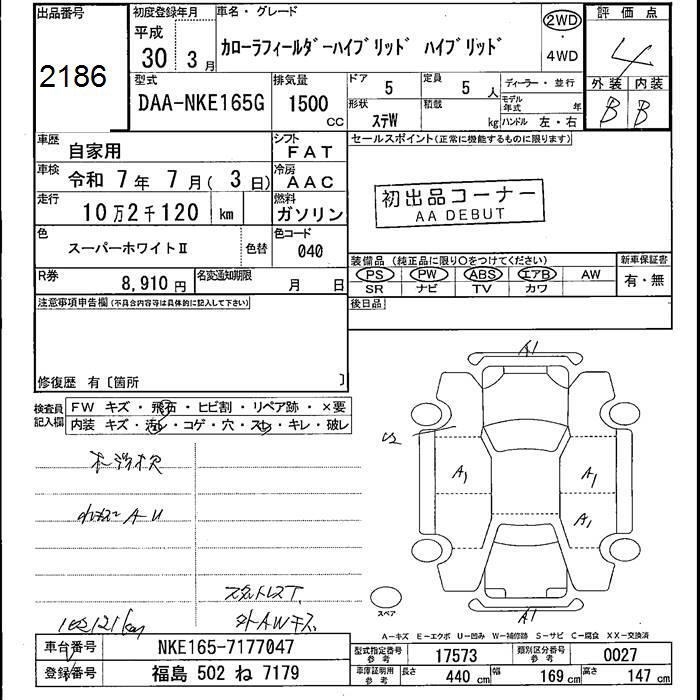 出品番号
2186
初度登録年月
平成
30年 3月
車名・グレード
カローラフィールダーハイブリッド ハイブリッド
2WD
・
4WD
評価点
4
外装 内装
B B
型式
DAA-NKE165G
排気量
1500
CC
ドア
5
定員
5人
形状
ステW
積載
kg
ディーラー・並行
モデル年式 年
ハンドル 左・右
車歴
自家用
シフト
FAT
車検
令和 7年 7月( 3日)
冷房
AAC
走行
10万2千120 km
燃料
ガソリン
色
スーパーホワイトⅡ
色替
色コード
040
R券
8,910円
名変通知期限
月 日
セールスポイント(正常に機能するものに限ります)
初出品コーナー
AA DEBUT
装備品 (純正品に限り〇をつけてください)
新車保証書
PS PW ABS エアB AW
有・無
SR ナビ TV カワ
後日品
注意事項申告欄(不具合内容等は具体的に記入して下さい)
修復歴 有〔箇所 〕
検査員記入欄
FW キズ・飛石・ヒビ割・リペア跡・×要
内装 キズ・汚レ・コゲ・穴・スレ・キレ・破レ
A1
A1
A1
A1
A1
スペア
スタットレスT.
外AWキズ.
A-キズ E-エクボ U-凹み W-補修跡 S-サビ C-腐食 XX-交換済
車台番号
NKE165-7177047
登録番号
福島 502 ね 7179
型式指定番号
参考
17573
類別区分番号
参考
0027
車庫証明用
参考
長さ
440 cm
幅
169 cm
高さ
147 cm